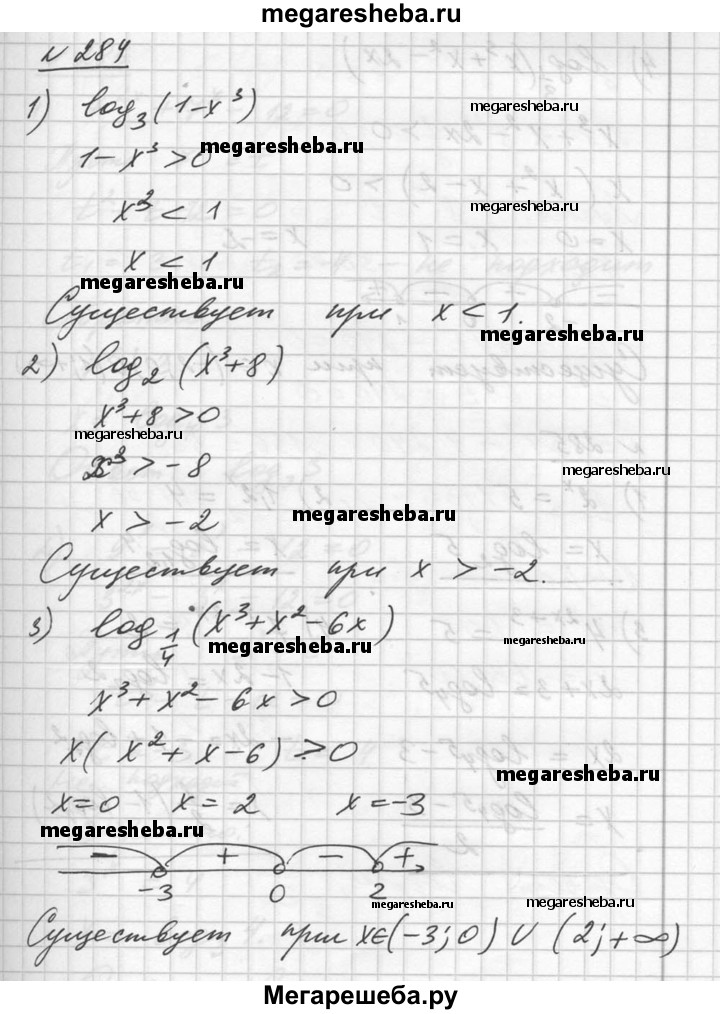 megaresheba.ru
№ 284
1) log₃(1-x³)
megaresheba.ru
1-x³>0
megaresheba.ru
x³ < 1
megaresheba.ru
x < 1
megaresheba.ru
Существует при x < 1.
megaresheba.ru
2) log₂(x³+8)
x³+8>0
megaresheba.ru
x³ > -8
megaresheba.ru
x > -2
megaresheba.ru
Существует при x > -2.
3) log_{1/4}(x³+x²-6x)
megaresheba.ru
megaresheba.ru
x³+x²-6x>0
x(x²+x-6)>0
megaresheba.ru
x=0 x=2 x=-3
megaresheba.ru
- + - +
-3 0 2
megaresheba.ru
megaresheba.ru
Существует при x∈(-3;0)∪(2;+∞)
Мегарешеба.ру